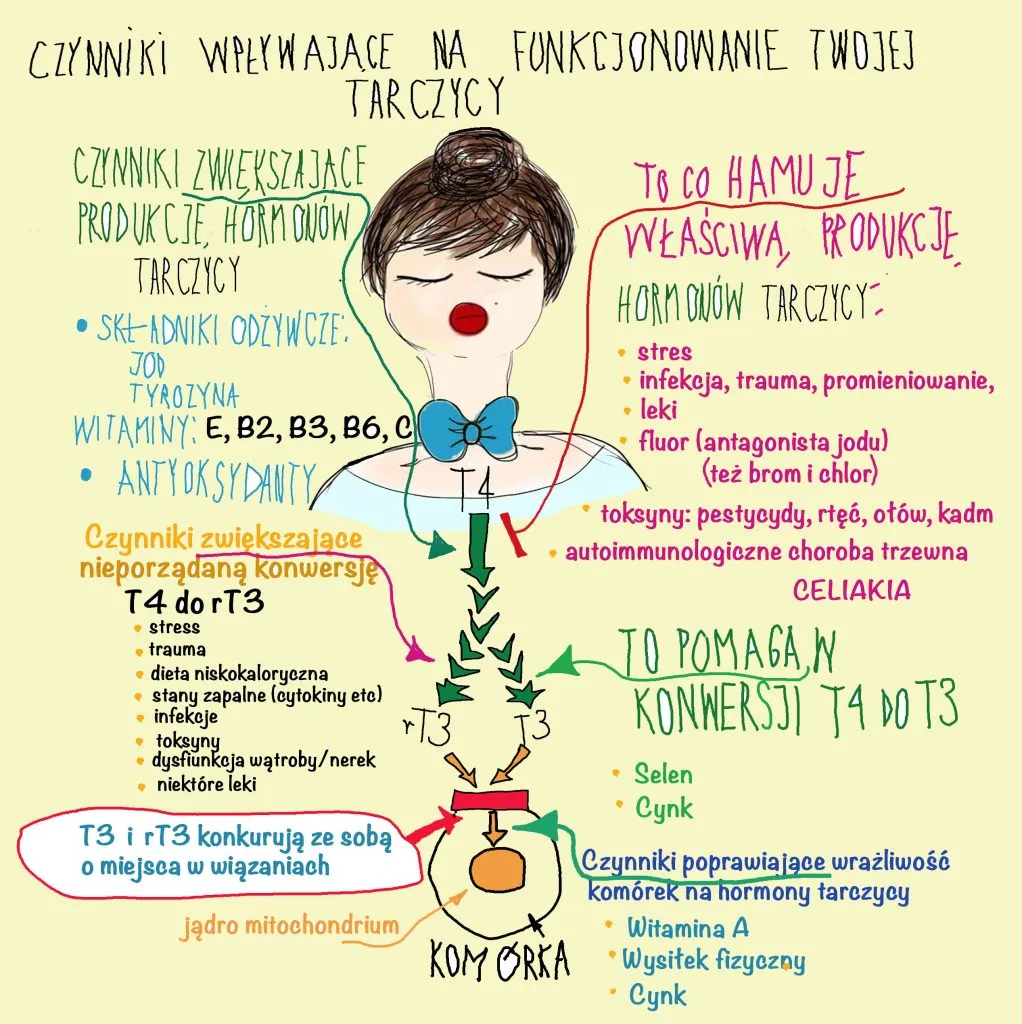 CZYNNIKI WPŁYWAJĄCE NA FUNKCJONOWANIE TWOJEJ
TARCZYCY
CZYNNIKI ZWIĘKSZAJĄCE
PRODUKCJĘ, HORMONÓW
TARCZYCY
• SKŁADNIKI ODŻYWCZE:
JOD
TYROZYNA
WITAMINY: E, B2, B3, B6, C
• ANTYOKSYDANTY
TO CO HAMUJE
WŁAŚCIWĄ, PRODUKCJĘ
HORMONÓW TARCZYCY:
• stres
• infekcja, trauma, promieniowanie,
• leki
• fluor (antagonista jodu)
(też brom i chlor)
• toksyny: pestycydy, rtęć, ołów, kadm
• autoimmunologiczne choroba trzewna
CELIAKIA
T4
Czynniki zwiększające
nieporządaną konwersję
T4 do rT3
• stress
• trauma
• dieta niskokaloryczna
• stany zapalne (cytokiny etc)
• infekcje
• toksyny
• dysfiunkcja wątroby/nerek
• niektóre leki
TO POMAGA W
KONWERSJI T4 DO T3
• Selen
• Cynk
rT3 T3
T3 i rT3 konkurują ze sobą
o miejsca w wiązaniach
jądro mitochondrium
KOMÓRKA
Czynniki poprawiające wrażliwość
komórek na hormony tarczycy
• Witamina A
• Wysiłek fizyczny
• Cynk